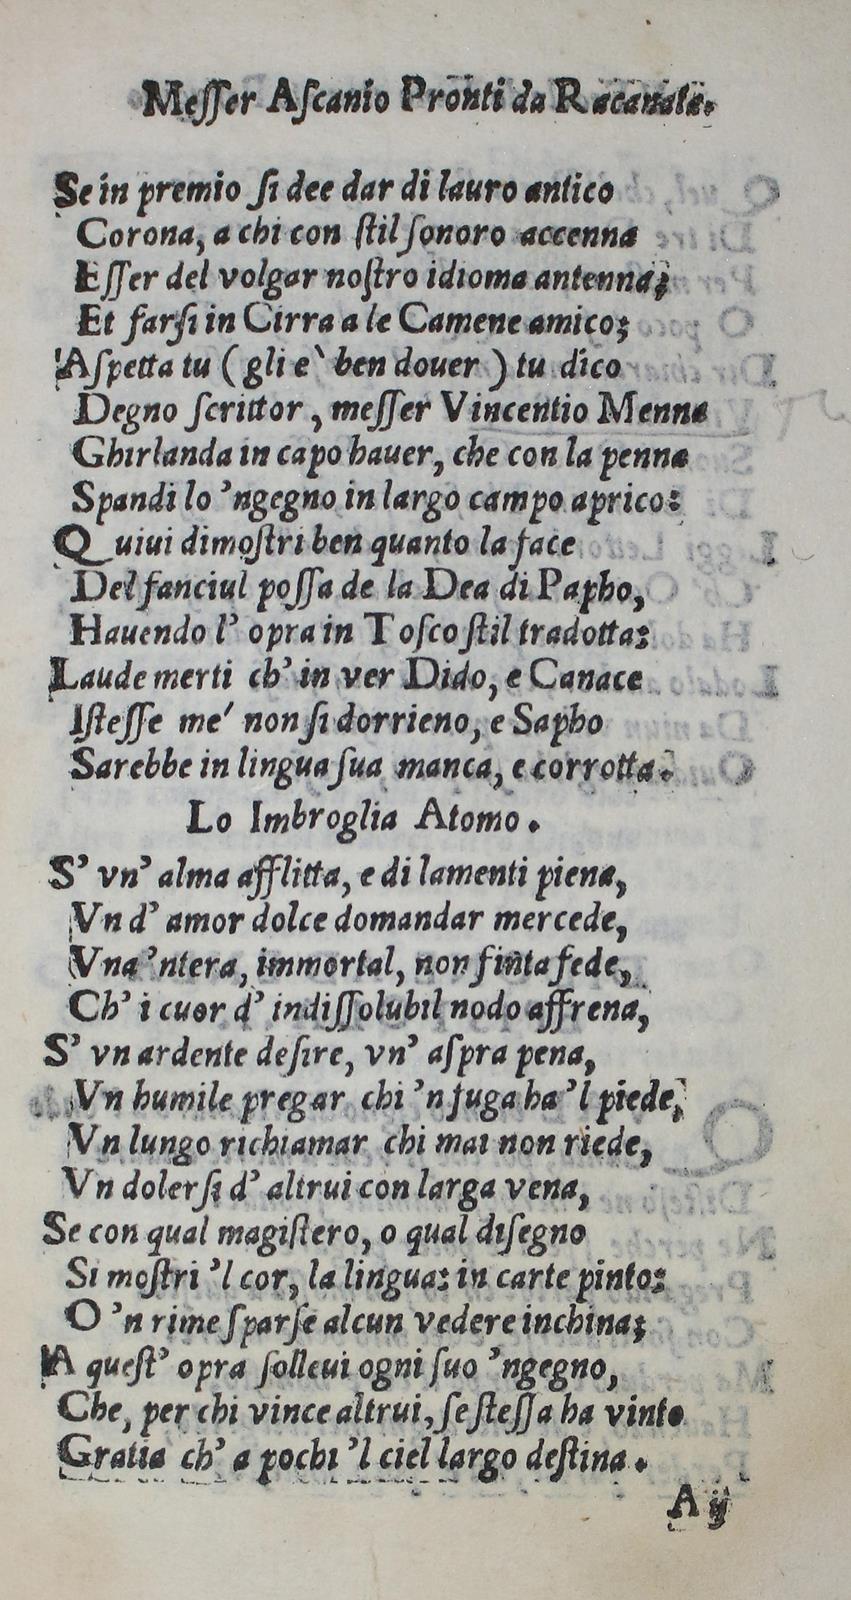 Meſſer Aſcanio Pronti da Racanata.
Se in premio ſi dee dar di lauro antico
Corona, a chi con ſtil ſonoro accenna
Eſſer del volgar noſtro idioma antenna;
Et farſi in Cirra a le Camene amico;
Aſpetta tu (gli e` ben douer) tu dico
Degno ſcrittor, meſſer Vincentio Menna
Ghirlanda in capo hauer, che con la penna
Spandi lo 'ngegno in largo campo aprico:
Quiui dimoſtri ben quanto la face
Del fanciul poſſa de la Dea di Papho,
Hauendo l' opra in Toſco ſtil tradotta:
Laude merti ch' in ver Dido, e Canace
Iſteſſe me' non ſi dorrieno, e Sapho
Sarebbe in lingua ſua manca, e corrotta.
Lo Imbroglia Atomo.
S' vn' alma afflitta, e di lamenti piena,
Vn d' amor dolce domandar mercede,
Vna 'ntera, immortal, non finta fede,
Ch' i cuor d' indiſſolubil nodo affrena,
S' vn ardente deſire, vn' aſpra pena,
Vn humile pregar chi 'n fuga ha 'l piede,
Vn lungo richiamar chi mai non riede,
Vn dolerſi d' altrui con larga vena,
Se con qual magiſtero, o qual diſegno
Si moſtri 'l cor, la lingua: in carte pinto:
O 'n rime ſparſe alcun vedere inchina;
A queſt' opra ſolleui ogni ſuo 'ngegno,
Che, per chi vince altrui, ſe ſteſſa ha vinto
Gratia ch' a pochi 'l ciel largo deſtina.
A ij